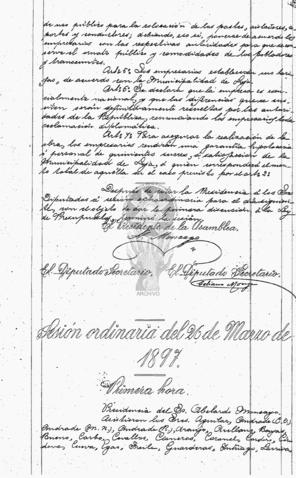 de uso público para la colocación de los postes, aisladores, so
portes y conductores; debiendo, eso sí, ponerse de acuerdo los
empresarios con las respectivas autoridades para que se con
serve el ornato público y comodidades de los pobladores
y transeuntes.
Art. 5º Los empresarios establecerán un
de acuerdo con la Municipalidad de
Art. 6º Se declara que la empresa es esen
cialmente nacional, y que las diferencias que se sus
citen serán definitivamente resueltas por las autori
dades de la República, renunciando los empresarios toda
reclamación diplomática.
Art. 7º Para asegurar la realización de la
obra, los empresarios rendirán una garantía hipotecaria
ó personal de quinientos sucres, á satisfacción de la
Municipalidad de á quien corresponderá
total de aquella en el caso previsto por el art. 3º
Después de la Presidencia á los Sres
Diputados á sesión extraordinaria para el día siguien
te, con el objeto de la primera discusión á la Ley
de Presupuestos, terminó la sesión.
El Presidente de la Asamblea,
El Diputado Secretario, El Diputado Secretario,
Celiano Monge
ARCHIVO
Sesión ordinaria del 26 de Marzo de
1897.
Primera hora.
Presidencia del Sr. Abelardo Moncayo.
Asistieron los Sres. Aguilar, Andrade (
Andrade ( Andrade R., Arango, Arellano,
Bueno, Carbo, Cevallos, Cisneros, Coronel,
Cueva, Egas, Freile, Intriago, Larrea